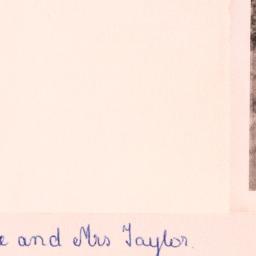 and Mrs Taylor.